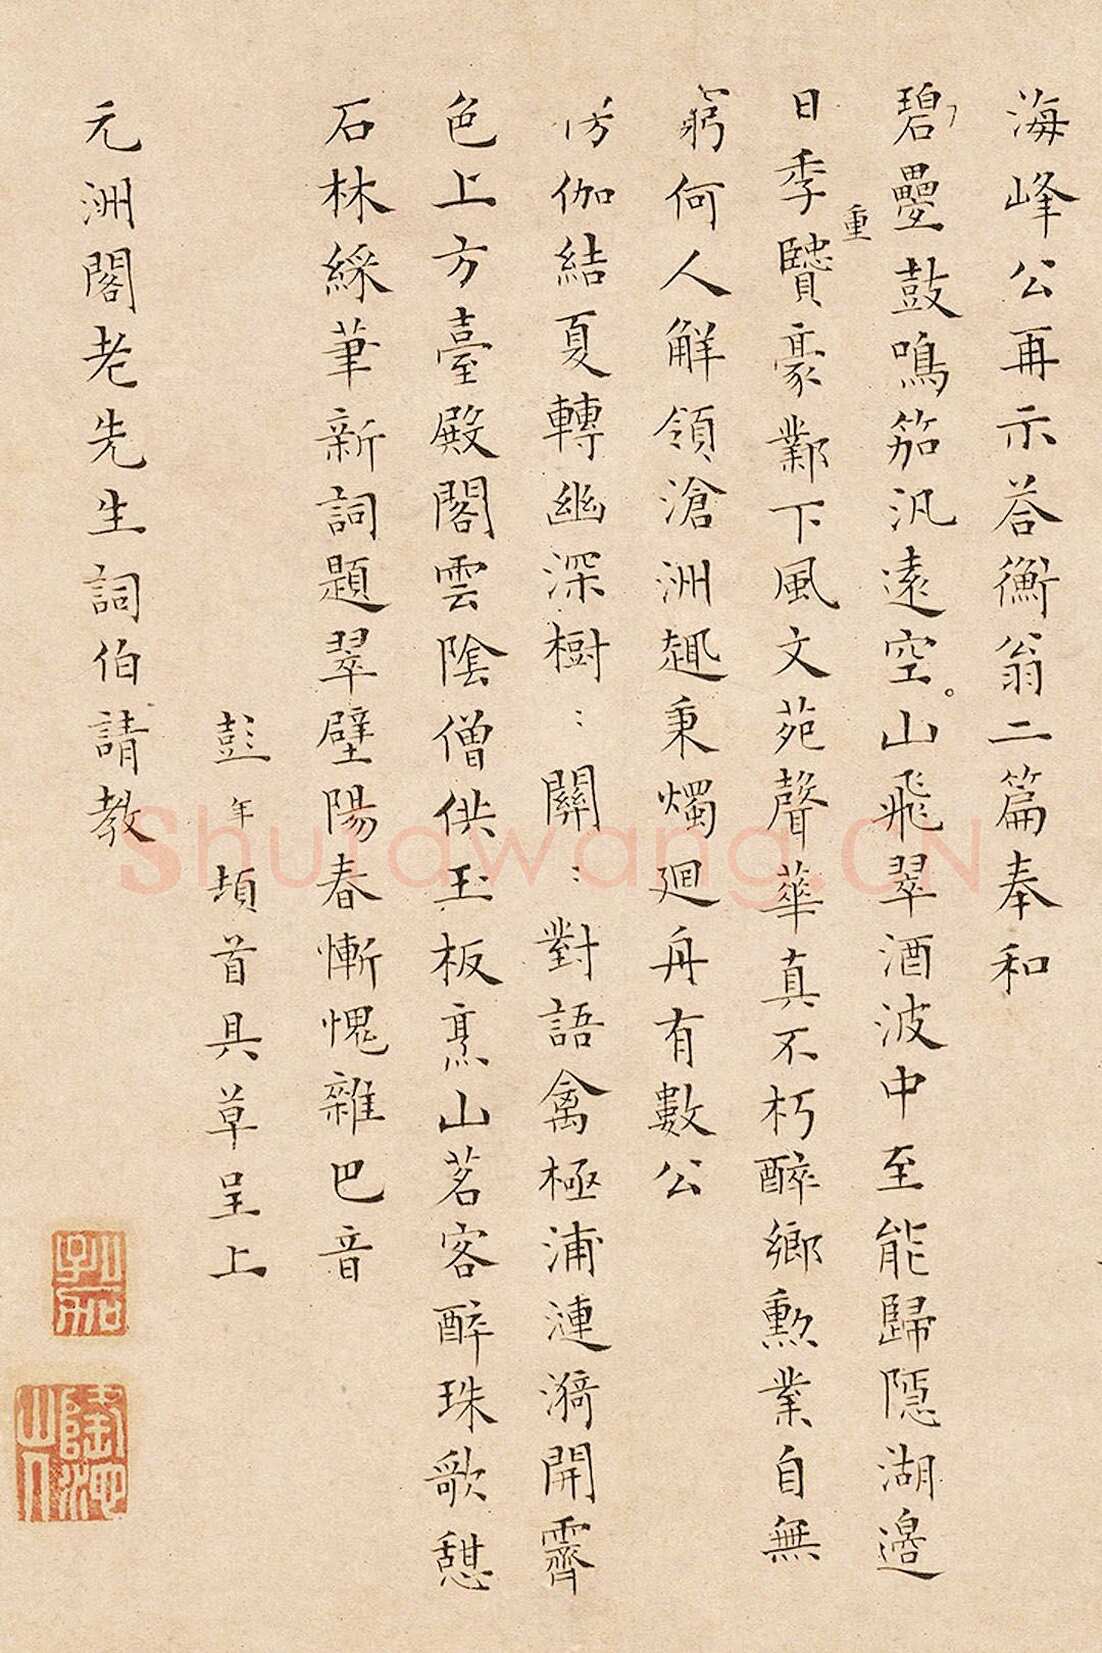 海峰公再示答衡翁二篇奉和
碧疊鼓鳴笳汎遠空山飛翠酒波中至能歸隱湖邉
日季贒豪鄴下風文苑聲華真不朽醉鄉勲業自無
重
窮何人解領滄洲趣秉燭廻舟有數公
彷伽結夏轉幽深樹〻關〻對語禽極浦漣漪開霽
色上方臺殿閣雲陰僧供玉板烹山茗客醉珠歌憇
石林綵筆新詞題翠壁陽春慚愧雜巴音
彭年頓首具草呈上
元洲閣老先生詞伯請教
Shufawang.CN